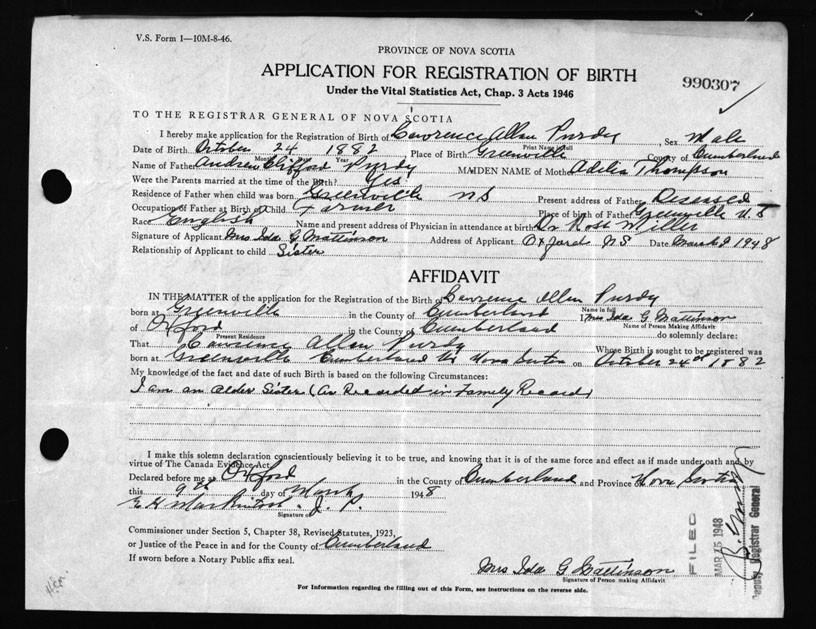 V.S. Form 1—10M-8-46.
PROVINCE OF NOVA SCOTIA
APPLICATION FOR REGISTRATION OF BIRTH
990307
Under the Vital Statistics Act, Chap. 3 Acts 1946
TO THE REGISTRAR GENERAL OF NOVA SCOTIA
I hereby make application for the Registration of Birth of Lawrence Allan Purdy Sex Male
Print Name in full
Date of Birth October 24 1882 Place of Birth Greenville County of Cumberland
Month Year
Name of Father Andrew Clifford Purdy MAIDEN NAME of Mother Adelia Thompson
Were the Parents married at the time of the Birth? Yes
Residence of Father when child was born Greenville NS Present address of Father Deseased
Occupation of Father at Birth of Child Farmer Place of birth of Father Greenville N.S
Race English Name and present address of Physician in attendance at birth Dr Miller
Signature of Applicant Mrs Ida G Mattinson Address of Applicant Oxford N.S. Date March 9 1948
Relationship of Applicant to child Sister
AFFIDAVIT
IN THE MATTER of the application for the Registration of the Birth of Lawrence Allan Purdy
Name in full
born at Greenville in the County of Cumberland I Mrs Ida G. Mattinson
Name of Person Making Affidavit
of Oxford in the County of Cumberland do solemnly declare:
Present Residence
That Lawrence Allan Purdy Whose Birth is sought to be registered was
born at Greenville Cumberland Co Nova Scotia on October 24th 1882
My knowledge of the fact and date of such Birth is based on the following Circumstances:
I am an older Sister (As Recorded in Family Record)
I make this solemn declaration conscientiously believing it to be true, and knowing that it is of the same force and effect as if made under oath and by
virtue of The Canada Evidence Act.
Declared before me at Oxford in the County of Cumberland and Province of Nova Scotia
this 9th day of March 1948
J. P.
Signature of
Commissioner under Section 5, Chapter 38, Revised Statutes, 1923,
or Justice of the Peace in and for the County of Cumberland
If sworn before a Notary Public affix seal.
Mrs Ida G Mattinson
Signature of Person making Affidavit
For Information regarding the filling out of this Form, see instructions on the reverse side.
FILED
MAR 15 1948
Deputy Registrar General